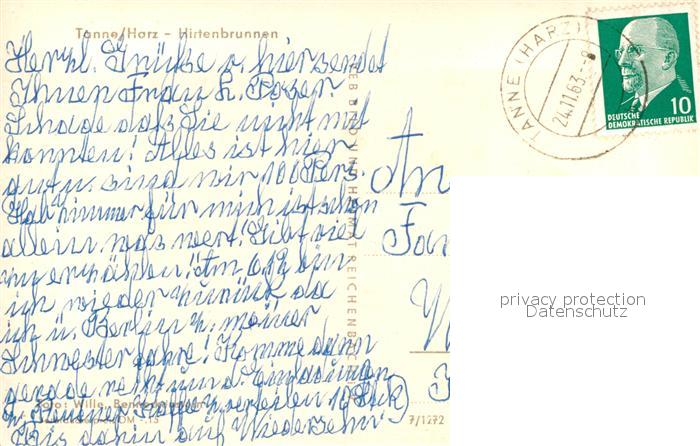 Tanne/Harz - Hirtenbrunnen
Herzl. Grüße v. hier sendet
Ihnen Frau H.
Schade daß Sie nicht mit
konnten! Alles ist hier
gut u. sind wir 10 Pers.
Hab Zimmer für mich ist schon
allein was wert! Gibt viel
zu erzählen! Am 6.12. bin
ich wieder zurück, da
ich ü. Berlin z. meiner
Schwester fahre! Komme dann
gerade recht und Einladungen
z. Feier verteilen 10 Stck)
Bis dahin auf Wiedersehn
An
Fa
TANNE (HARZ)
24.11.63.-8
DEUTSCHE
DEMOKRATISCHE REPUBLIK
10
BILD UND HEIMAT REICHENBACH
Foto: Wille,
7/1272
privacy protection
Datenschutz